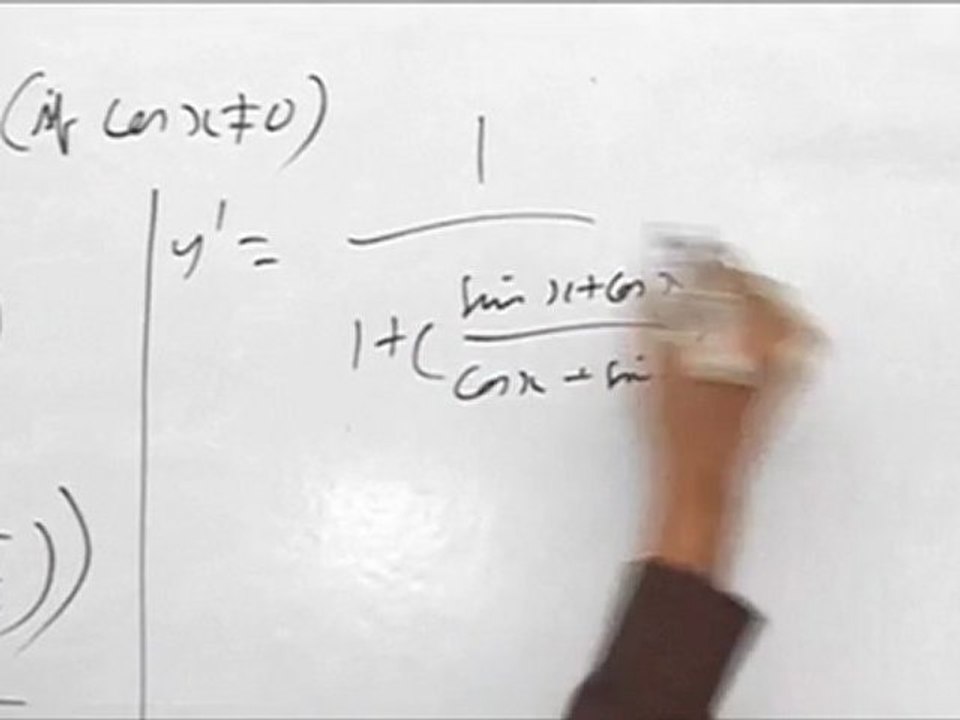 (if cos x ≠ 0)
y' =
1
sin x + cos x
1 + (
cos x - sin
))